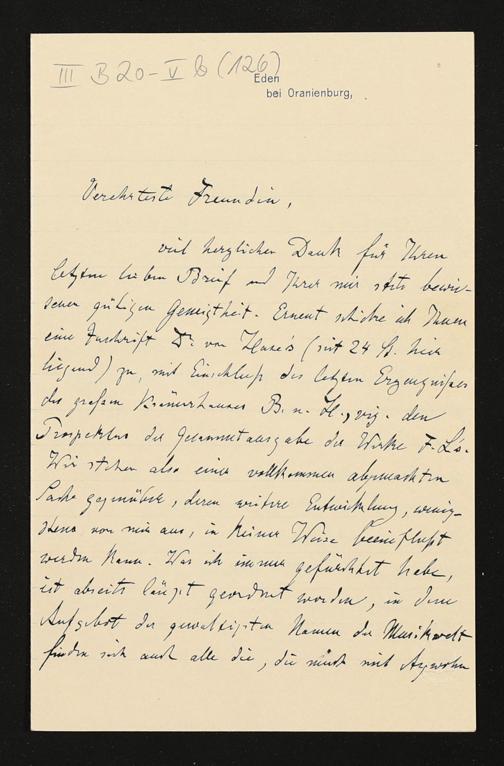 III B 20 - V b (126)
Eden
bei Oranienburg,
Verehrteste Freundin,
viel herzlichen Dank für Ihren
letzten lieben Brief und Ihrer mir stets bewie-
senen gütigen Geneigtheit. Erneut schicke ich Ihnen
eine Zuschrift Dr. von Hase's (seit 24 St. hier
liegend) zu, mit Einschluß des letzten Erzeugnisses
des großen Krämerhauses B. u. H., den
Prospektus der Gesammtausgabe der Werke F. L's.
Wir stehen also einer vollkommen abgemachten
Sache gegenüber, deren weitere Entwicklung, wenig-
stens von mir aus, in keiner Weise beeinflußt
werden kann. Was ich immer gefürchtet habe,
ist abseits längst geordnet worden, in dem
Aufgebot der gewaltigsten Namen der Musikwelt
finden sich auch alle die, die mich mit Argwohn